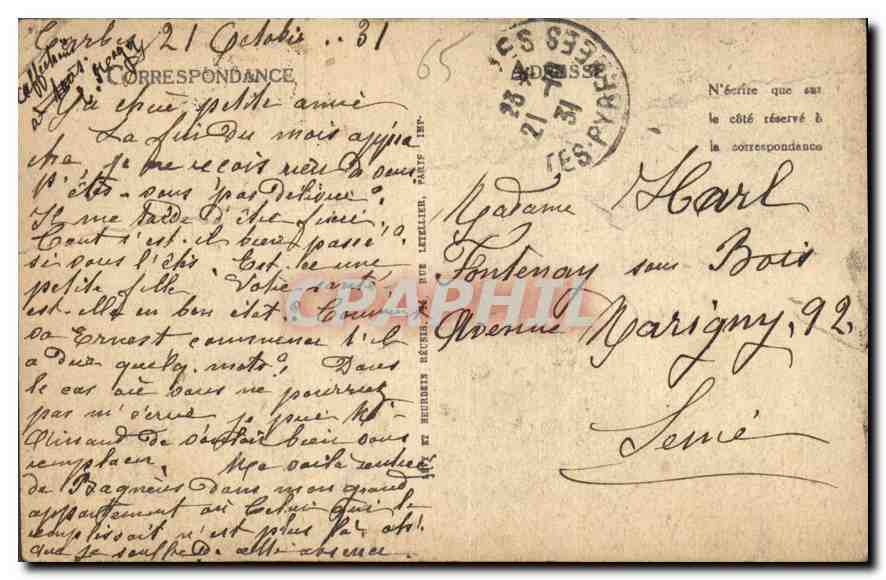 Tarbes 21 Octobre .. 31
CORRESPONDANCE
Ma chère petite amie
La fin du mois approche
je ne reçois rien de vous
l'êtes-vous pas
Il me tarde d'être fixée.
Tout s'est-il bien passé?
si vous l'êtes. Est-ce une
petite fille. Votre santé
est-elle en bon état? Comment
va Ernest comment t'il
a dire quelq. mots? Dans
le cas où vous ne pourriez
pas m'écrire je prie Mr
de vouloir bien vous
remplacer. Me voilà rentrée
de Bagnères dans mon grand
appartement où Celui qui le
remplissait n'est plus là, ah!
que je souffre de cette absence.
65
ADRESSE
HAUTES-PYRENEES
21 31
N'écrire que sur
le côté réservé à
la correspondance
Madame Harl
Fontenay sous Bois
Avenue Marigny, 92.
Seine
ET NEURDEIN RÉUNIS, RUE LETELLIER, PARIS IMP.
CPAPHIL